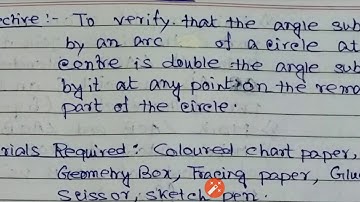 ective:- To verify that the angle sub
by an arc of a circle at
centre is double the angle sub
by it at any point on the rema
part of the circle.
rials Required: Coloured chart paper,
Geometry Box, Tracing paper, Glu
Scissor, sketch pen.